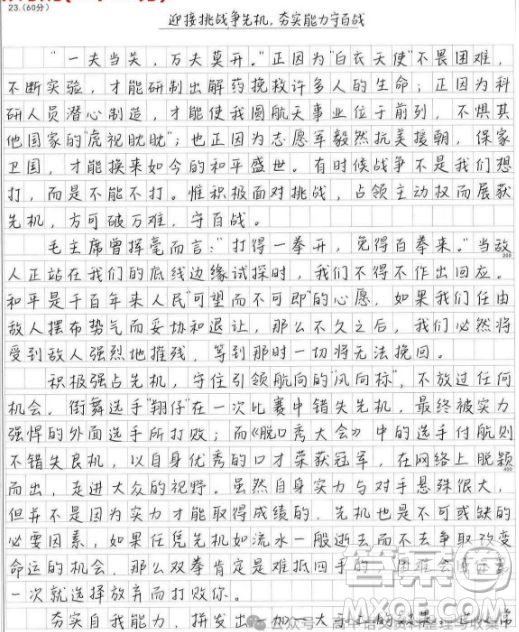 23.(60分)
迎接挑战争先机,夯实能力守百战
"一夫当关,万夫莫开。"正因为"白衣天使"不畏困难,
不断实验,才能研制出解药挽救许多人的生命;正因为科
研人员潜心制造,才能使我国航天事业位于前列,不惧其
他国家的"虎视眈眈";也正因为志愿军毅然抗美援朝,保家
卫国,才能换来如今的和平盛世。有时候战争不是我们想
打,而是不能不打。惟积极面对挑战,占领主动权而展获
先机,方可破万难,守百战。
毛主席曾挥毫而言:"打得一拳开,免得百拳来。"当敌
人正站在我们的底线边缘试探时,我们不得不作出回应。
和平是千百年来人民"可望而不可即"的心愿,如果我们任由
敌人摆布势气而妥协和退让,那么不久之后,我们必然将
受到敌人强烈地摧残,等到那时一切将无法挽回。
积极强占先机,守住引领航向的"风向标",不放过任何
机会。街舞选手"翔仔"在一次比赛中错失先机,最终被实力
强悍的外面选手所打败;而《脱口秀大会》中的选手付航则
不错失良机,以自身优秀的口才荣获冠军,在网络上脱颖
而出,走进大众的视野。虽然自身实力与对手悬殊很大,
但并不是因为实力才能取得成绩的,先机也是不可或缺的
必要因素,如果任凭先机如流水一般逝去而不去争取改变
命运的机会,那么双拳肯定是难抵四手的,困难会
一次就选择放弃而打败你。
夯实自我能力,拼发出一加一大于二的效果。